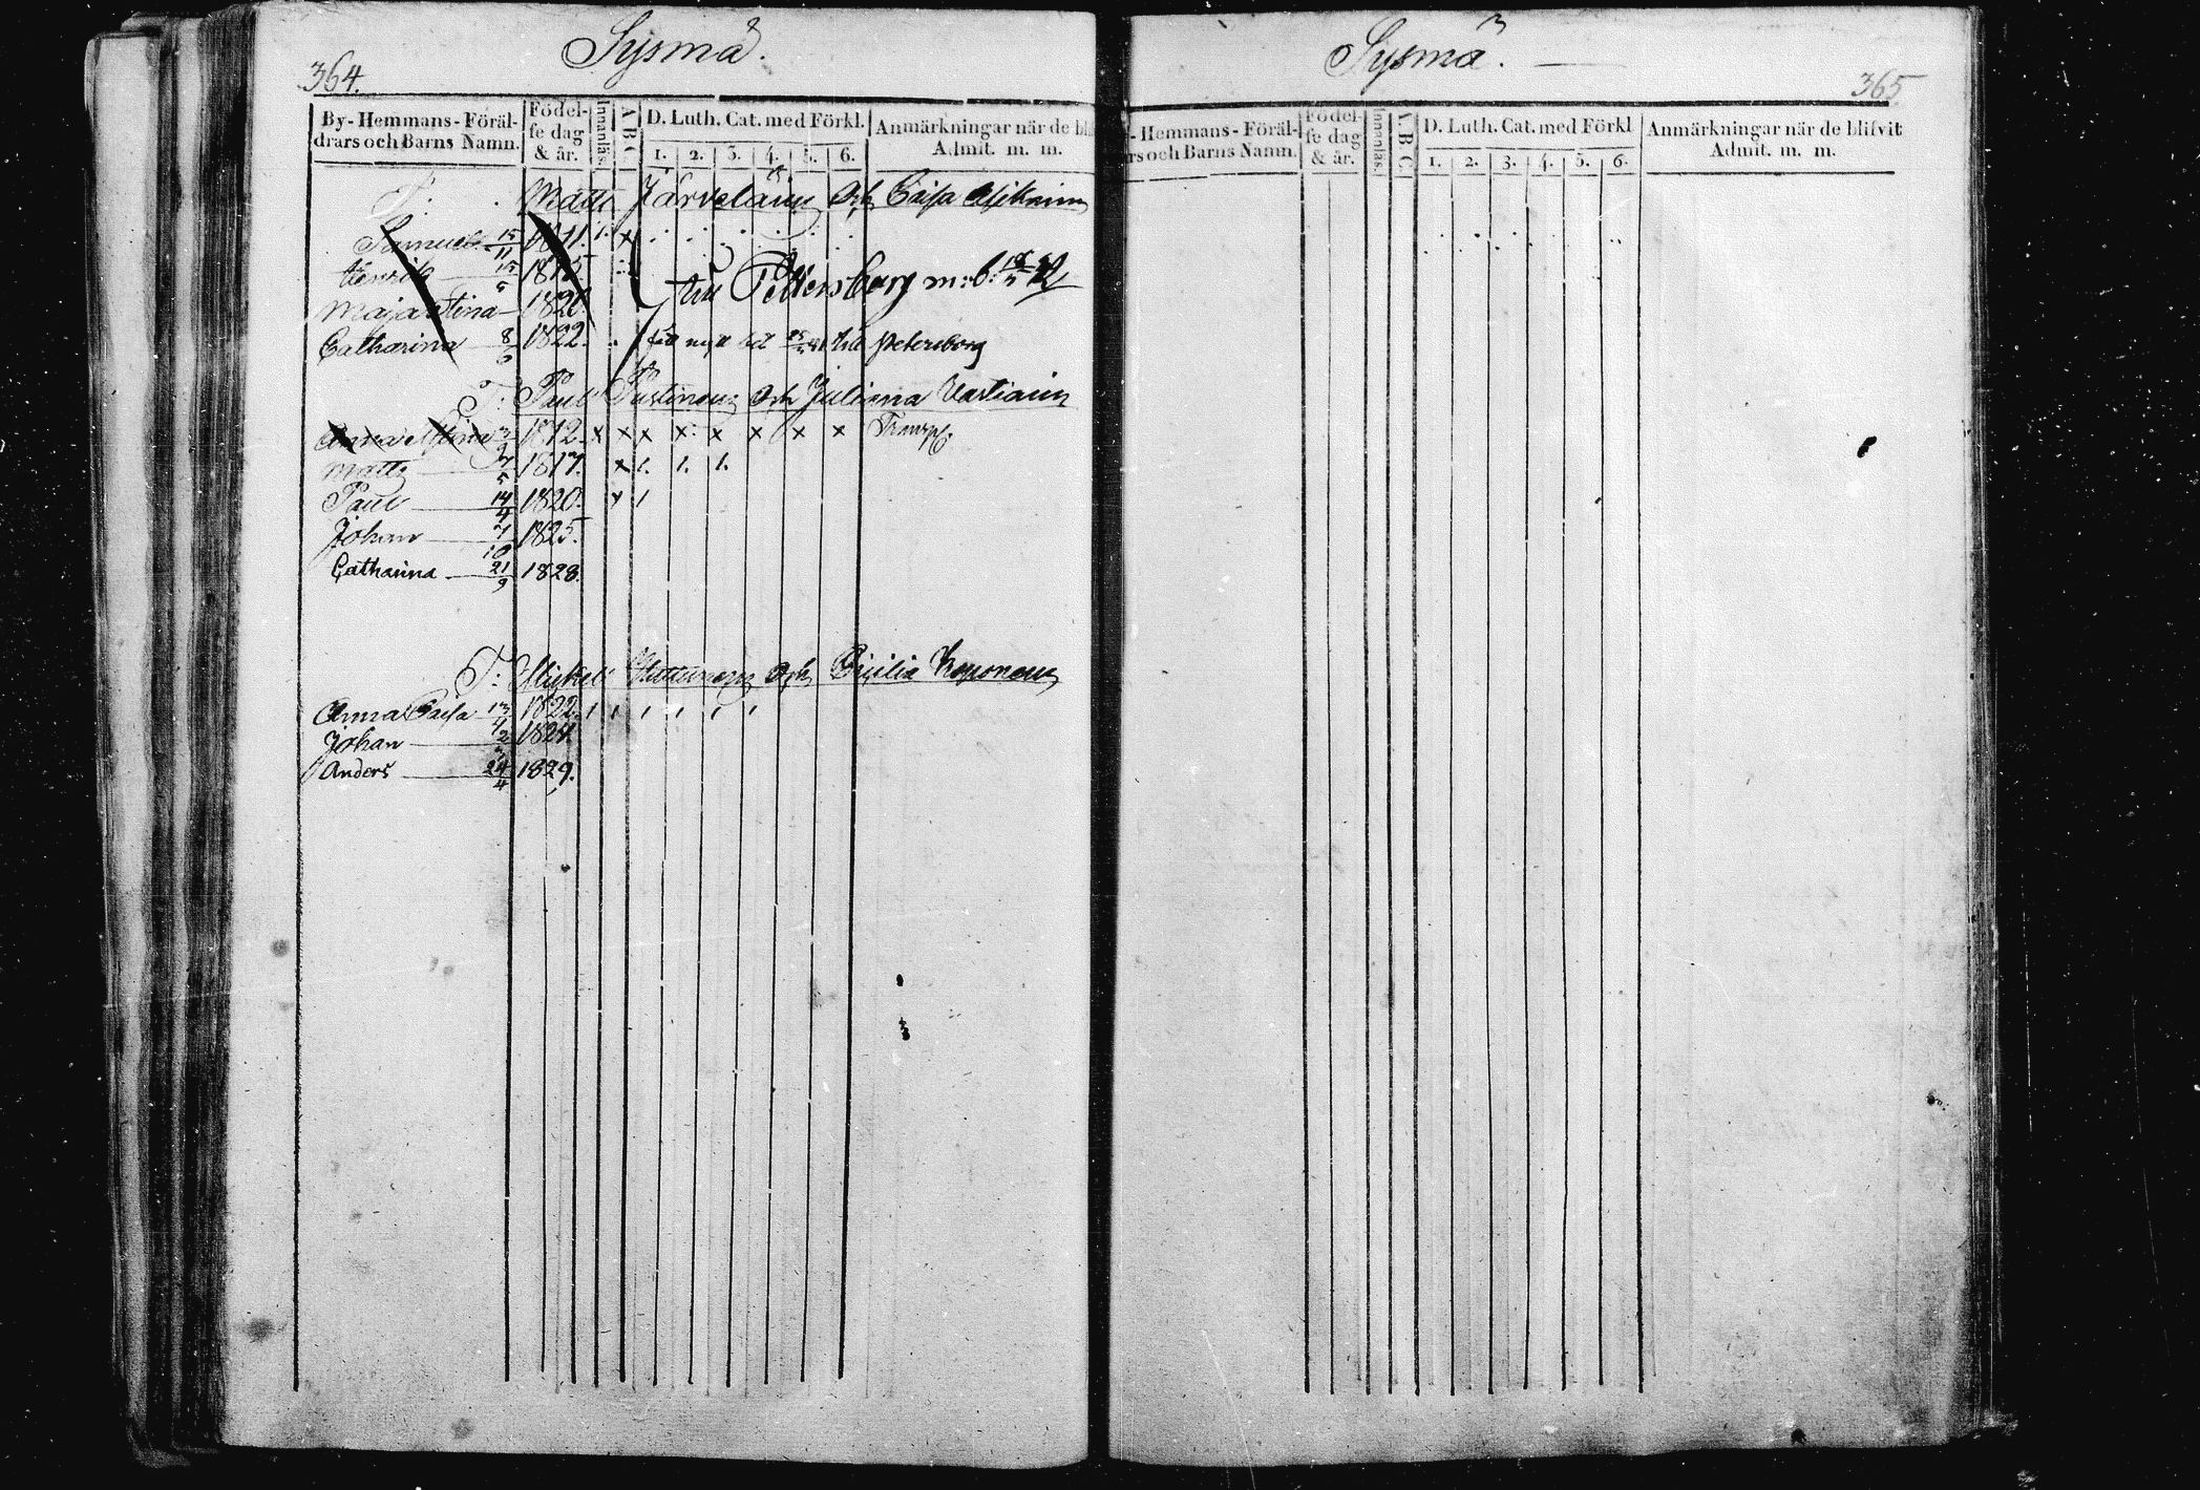 364.
Sysmä.
By-Hemmans-Föräl-
drars och Barns Namn.
Födel-
se dag
& år.
Innanläs.
A B C
D. Luth. Cat. med Förkl.
1. 2. 3. 4. 5. 6.
Anmärkningar när de bli
Admit. m. m.
Matts Järveläinen Och Caisa Asikainen
Samuel 15/11 1811. 1. x
Henrik 15/5 1815.
Maja Stina
till Pettersburg m: b:
Catharina 8/6 1822. till Petersborg
T: Paul Pustinen Och Juliana Vartiain
1812. x x x x x x x x
Matts 7/5 1817. x 1. 1. 1.
Paul 14/4 1820. x 1
Johan 7/10 1825.
Catharina 21/9 1828.
T: Michell Och Cicilia Koponen
Anna Caisa 13/4 1822. 1 1 1 1 1 1
Johan 1824.
Anders 24/4 1829.
Sysmä.
365
-Hemmans-Föräl-
rs och Barns Namn.
Födel-
se dag
& år.
Innanläs.
A B C
D. Luth. Cat. med Förkl
1. 2. 3. 4. 5. 6.
Anmärkningar när de blifvit
Admit. m. m.